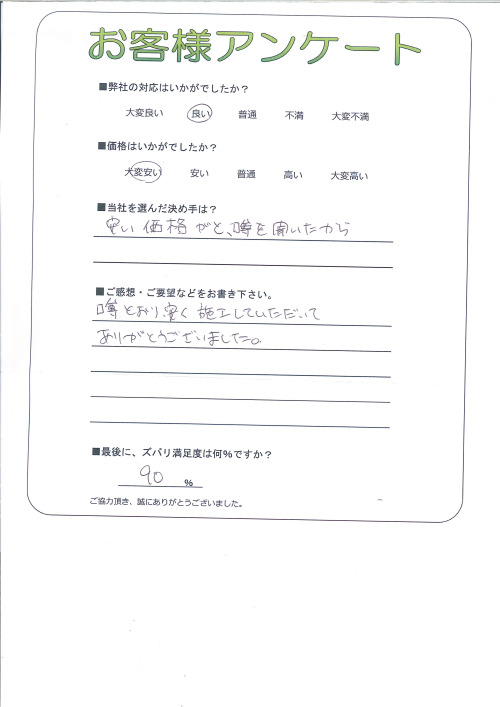 お客様アンケート
■弊社の対応はいかがでしたか？
大変良い 良い 普通 不満 大変不満
■価格はいかがでしたか？
大変安い 安い 普通 高い 大変高い
■当社を選んだ決め手は？
安い価格がと、噂を聞いたから
■ご感想・ご要望などをお書き下さい。
噂とおり安く施工していただいて
ありがとうございました。
■最後に、ズバリ満足度は何％ですか？
90 ％
ご協力頂き、誠にありがとうございました。